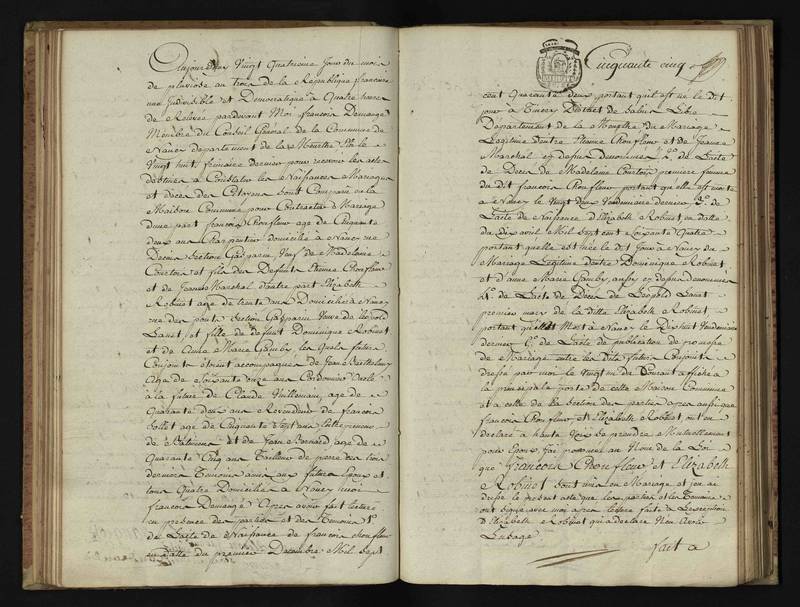 Aujourdhuy Vingt Quatrieme Jour du mois
de pluviose an trois de la Republique francoise
une Indivisible et Democratique a Quatre heures
de Relevée pardevant Moi francois Demange
Membre du Conseil Général de la Commune de
Nancy departement de la Meurthe Elu le
Vingt huit frimaire dernier pour recevoir les actes
destinés a Constater les Naissances Mariages
et deces des Citoyens Sont Comparu en la
Maison Commune pour Contracter Mariage
dune part francois Chonfleur age de Cinquante
deux ans Charpentier domicilié à Nancy rue
Section Gasparin Veuf de Madelaine
Courtois et fils des Defunts Etienne Chonfleur
et de Jeanne Marchal dautre part Elizabeth
Robinot age de trente ans Domiciliée a Nancy
rue des ponts Section Gasparin Veuve de Léopold
Sanet, et fille de defunt Dominique Robinot
et de Anne Marie Gamby les Quels futurs
Conjoints etoient accompagnés de Jean Barthelemy
Age de Soixante onze ans Cordonnier
à la future de Claude Villemain age de
Quarante deux ans Revendeur de francois
bollet age de Cinquante Sept ans Entrepreneur
de Batimens et de Jean Bernard age de
Quarante Cinq ans Tailleur de pierre les trois
derniers Temoins amis aux futurs Epoux et
tous Quatre Domiciliés a Nancy moi
francois Demange Apres avoir fait lecture
en presence des parties et des Temoins 1º
de Lacte de Naissance de francois Chonfleur
en datte du premier Decembre Mil Sept
Cinquante cinq
cent Quarante deux portant quil est né le dit
jour à District de Salins Libre
Département de la Meurthe du Mariage
Legitime dentre Etienne Chonfleur et de Jeanne
Marchal cy dessus denommés 2º de Lacte
de Deces de Madelaine Courtois premiere femme
du Dit francois Chonfleur portant quelle est morte
a Nancy le Vingt deux Vendemiaire dernier 3º de
Lacte de Naissance d'Elizabeth Robinot en datte
du dix avril Mil Sept cent Soixante Quatre
portant quelle est née le dit jour à Nancy du
Mariage Legitime dentre Dominique Robinot
et d'anne Marie Gamby aussy cy dessus denommés
4º de Lacte de Deces de Leopold Sanet
premier mary de la ditte Elizabeth Robinot
portant quil est Mort a Nancy le Dixhuit Vendemiaire
dernier 5º de Lacte de publication de promesse
de Mariage entre les dits futurs Conjoints
dressé par moi le vingt un du Courant affiché a
la principale porte de cette Maison Commune
et a celle de la Section des parties apres aussi que
francois Chonfleur et Elizabeth Robinot ont eu
declaré a haute Voix Se prendre Mutuellement
pour Epoux Jai prononcé au Nom de la Loi
que francois Chonfleur et Elizabeth
Robinot Sont unis en Mariage et jen ai
dressé le présent acte que les parties et les Temoins
ont signé avec moi apres lecture faite à Lexception
d'Elizabeth Robinot qui a declaré Nen avoir
Lusage
fait a